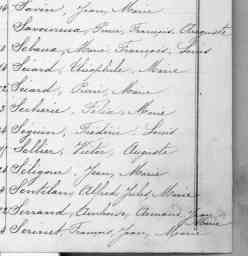 Savin, Jean, Marie
Savoureux, Pierre, François, Auguste
Sebaux, Marie, François, Louis
Sicard, Théophile, Marie
Sicard, Pierre, Marie
Secherie, Félix, Marie
Seguin, Frédéric, Louis
Sellier, Victor, Auguste
Seligour, Jean, Marie
Sentilan, Alfred, Jules, Marie
Serrand, Ambroise, Armand, Jean, Marie
Serinet, François, Jean, Marie